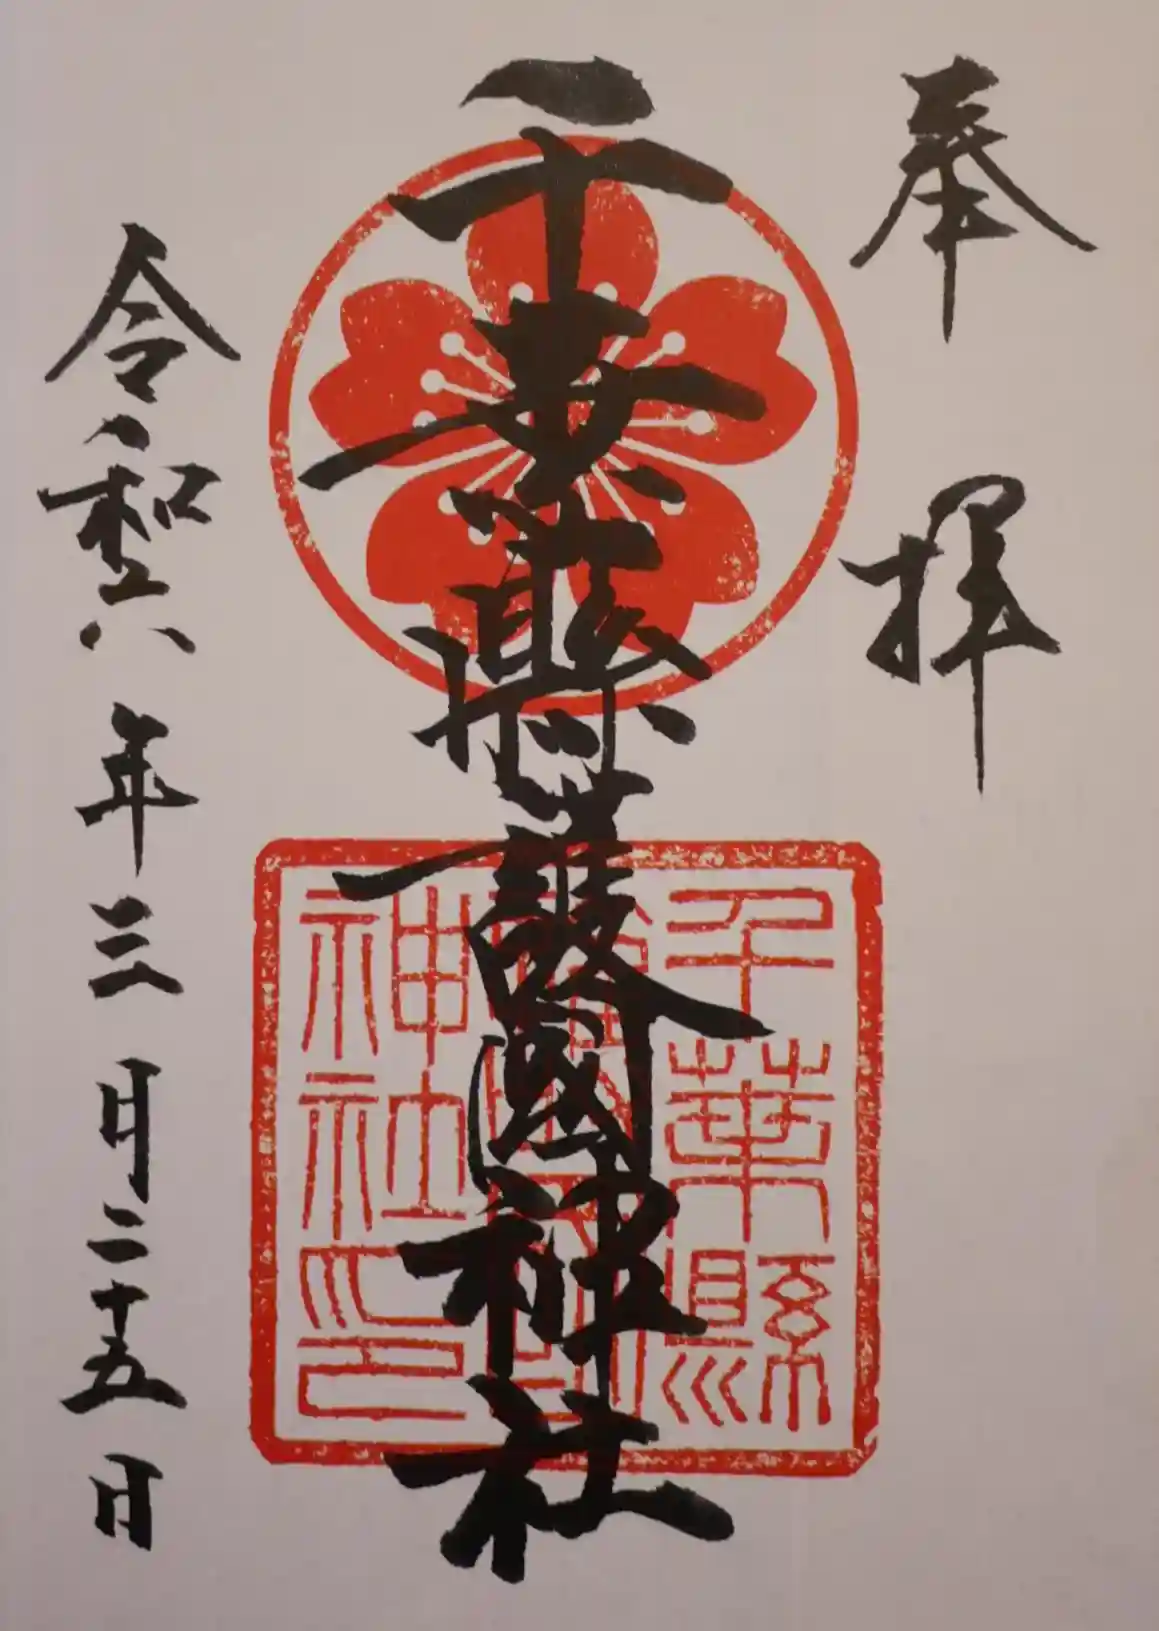 奉拝
千葉縣護國神社
千葉縣
護國
神社印
令和六年三月二十五日